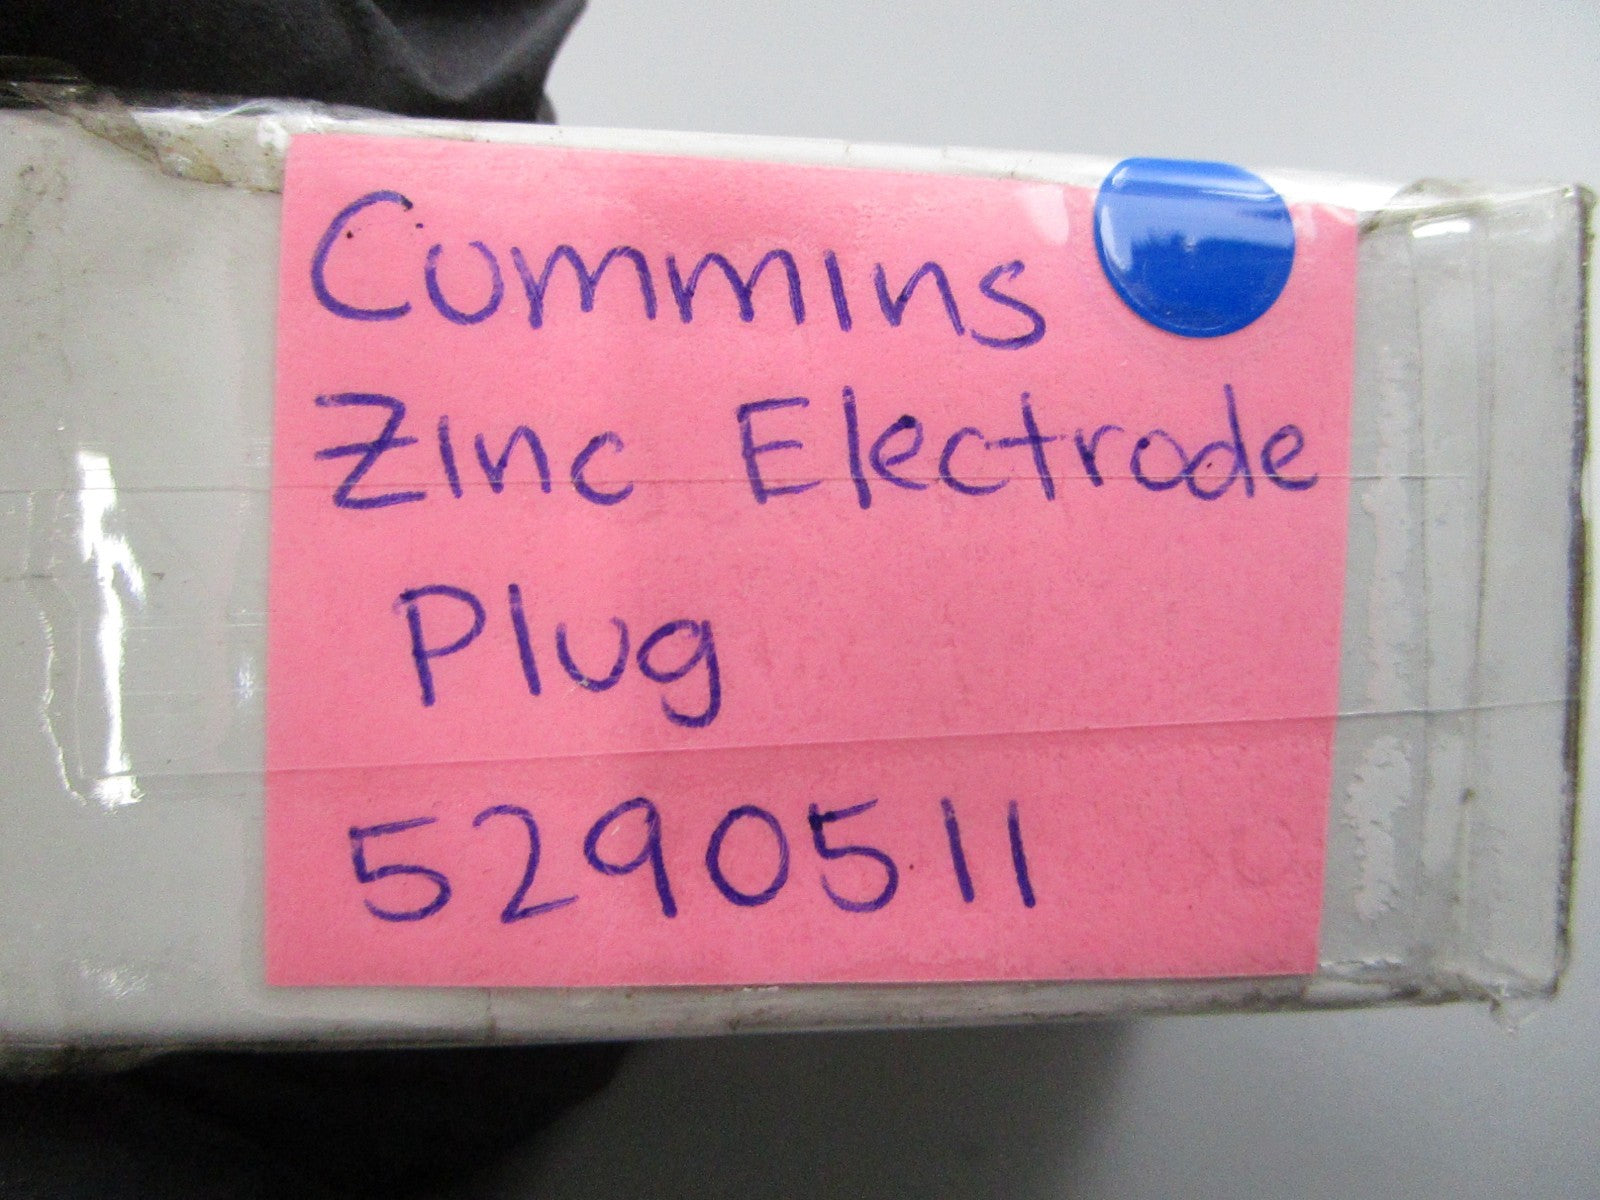 Cummins
Zinc Electrode
Plug
5290511